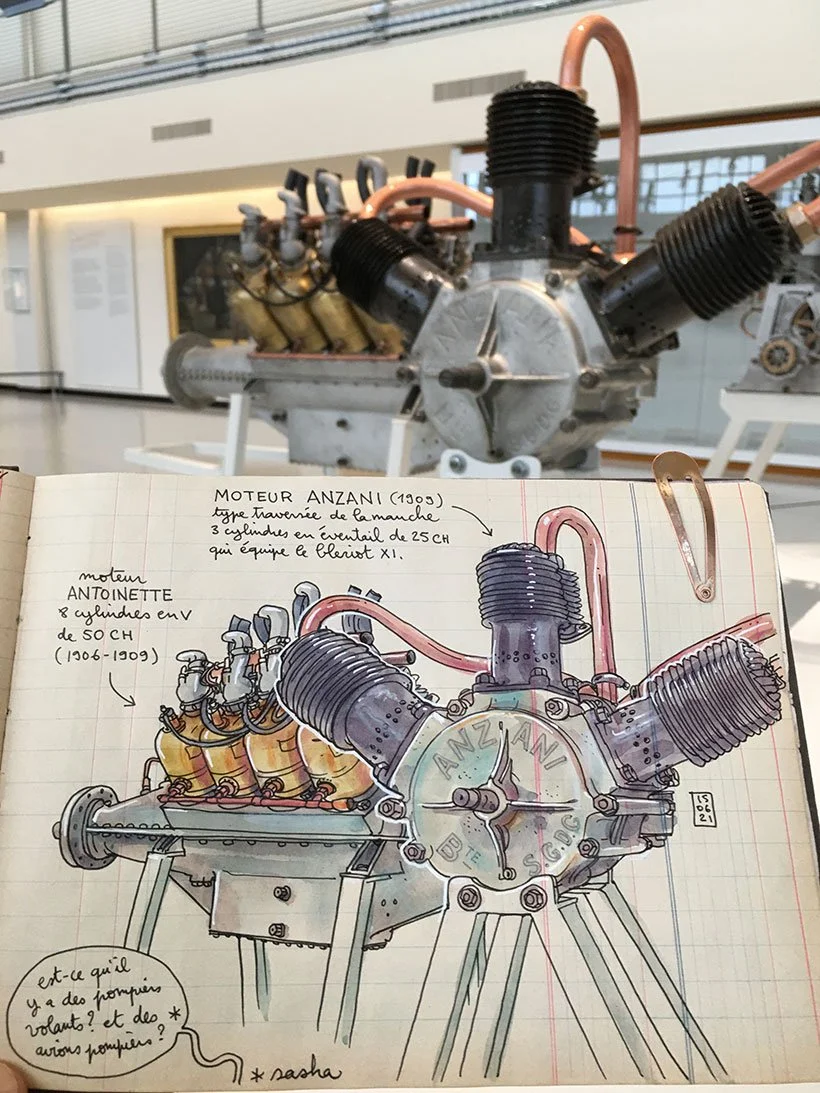 ANZANI
MOTEUR ANZANI (1909)
type traversée de la manche
3 cylindres en éventail de 25 CH
qui équipe le bleriot XI.
moteur
ANTOINETTE
8 cylindres en V
de 50 CH
(1906-1909)
ANZANI
BTE S.G.DG
15
06
21
est-ce qu'il
y a des pompiers
volants? et des *
avions pompiers?
* sasha